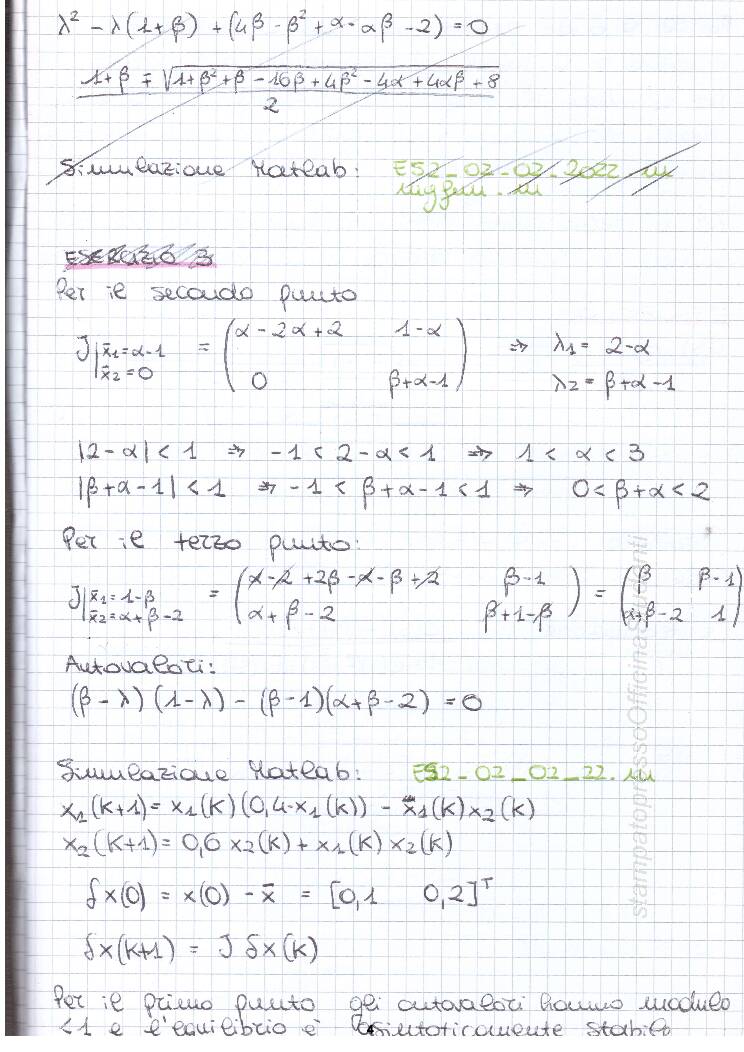 λ² - λ(1+β) + (4β - β² + α - αβ - 2) = 0
1+β ∓ √(1+β²+β - 16β + 4β² - 4α + 4αβ + 8
2
Simulazione Matlab: ES2_02-02-2022.m
myfun.m
ESERCIZIO 3
Per il secondo punto
J|x̄1=α-1 x̄2=0 = (α - 2α + 2   1-α ; 0   β+α-1) ⇒ λ1 = 2-α
λ2 = β+α-1
|2-α| < 1 ⇒ -1 < 2-α < 1 ⇒ 1 < α < 3
|β+α-1| < 1 ⇒ -1 < β+α-1 < 1 ⇒ 0 < β+α < 2
Per il terzo punto:
J|x̄1=1-β x̄2=α+β-2 = (α - 2 + 2β - α - β + 2   β-1 ; α+β-2   β+1-β) = (β   β-1 ; α+β-2   1)
Autovalori:
(β-λ)(1-λ) - (β-1)(α+β-2) = 0
Simulazione Matlab: ES2-02_02_22.m
x1(k+1) = x1(k)(0,4-x1(k)) - x1(k)x2(k)
x2(k+1) = 0,6 x2(k) + x1(k) x2(k)
δx(0) = x(0) - x̄ = [0,1   0,2]ᵀ
δx(k+1) = J δx(k)
Per il primo punto gli autovalori hanno modulo
<1 e l'equilibrio è asintoticamente stabile
stampatopressoOfficinaStudenti